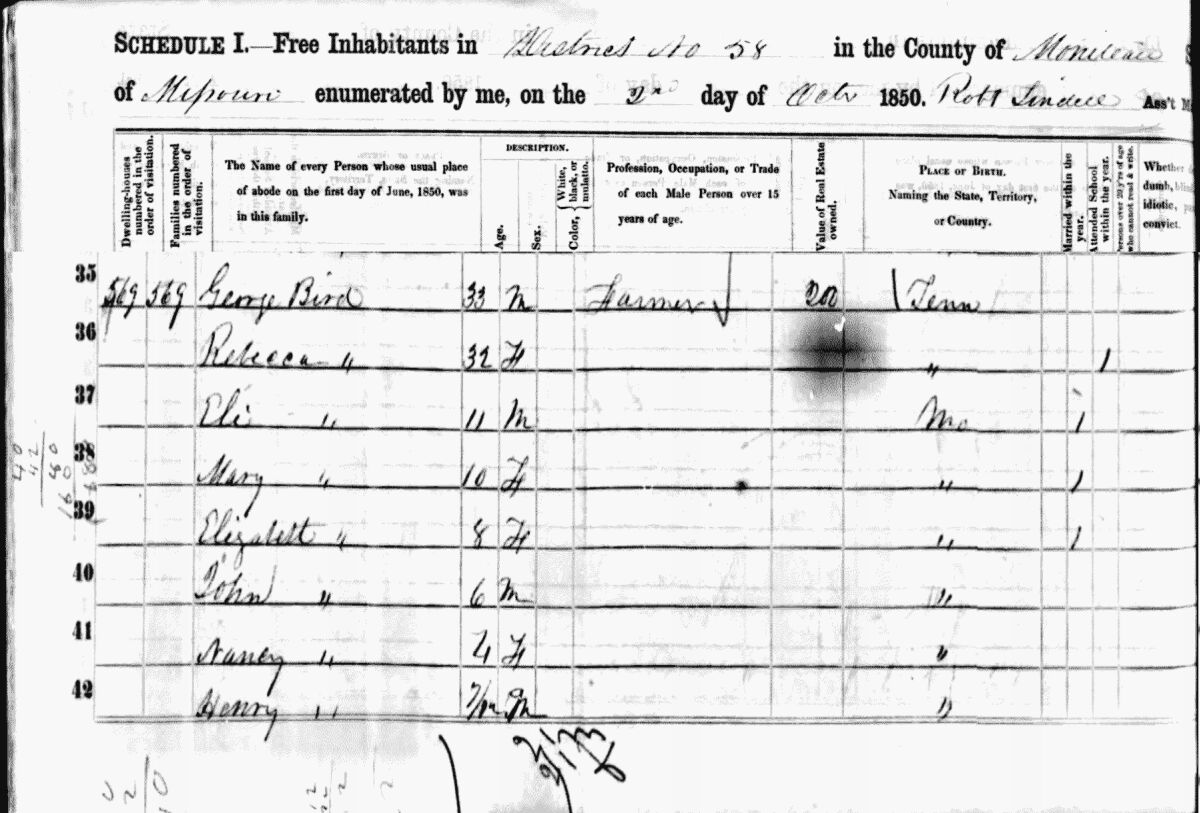 SCHEDULE I.—Free Inhabitants in District No 58 in the County of Moniteau
of Missouri enumerated by me, on the 2d day of Octr 1850. Robt Ass't M
Dwelling-houses numbered in the order of visitation.
Families numbered in the order of visitation.
The Name of every Person whose usual place of abode on the first day of June, 1850, was in this family.
DESCRIPTION.
Age.
Sex.
Color, { White, black, or mulatto.
Profession, Occupation, or Trade of each Male Person over 15 years of age.
Value of Real Estate owned.
PLACE OF BIRTH. Naming the State, Territory, or Country.
Married within the year.
Attended School within the year.
Persons over 20 y'rs of age who cannot read & write.
Whether dumb, idiotic, convict.
35 569 569 George Bird 33 M Farmer 200 Tenn
36 Rebecca " 32 F " 1
37 Eli " 11 M Mo 1
38 Mary " 10 F " 1
39 Elizabeth " 8 F " 1
40 John " 6 M "
41 Nancy " 4 F "
42 Henry " 7/12 M "